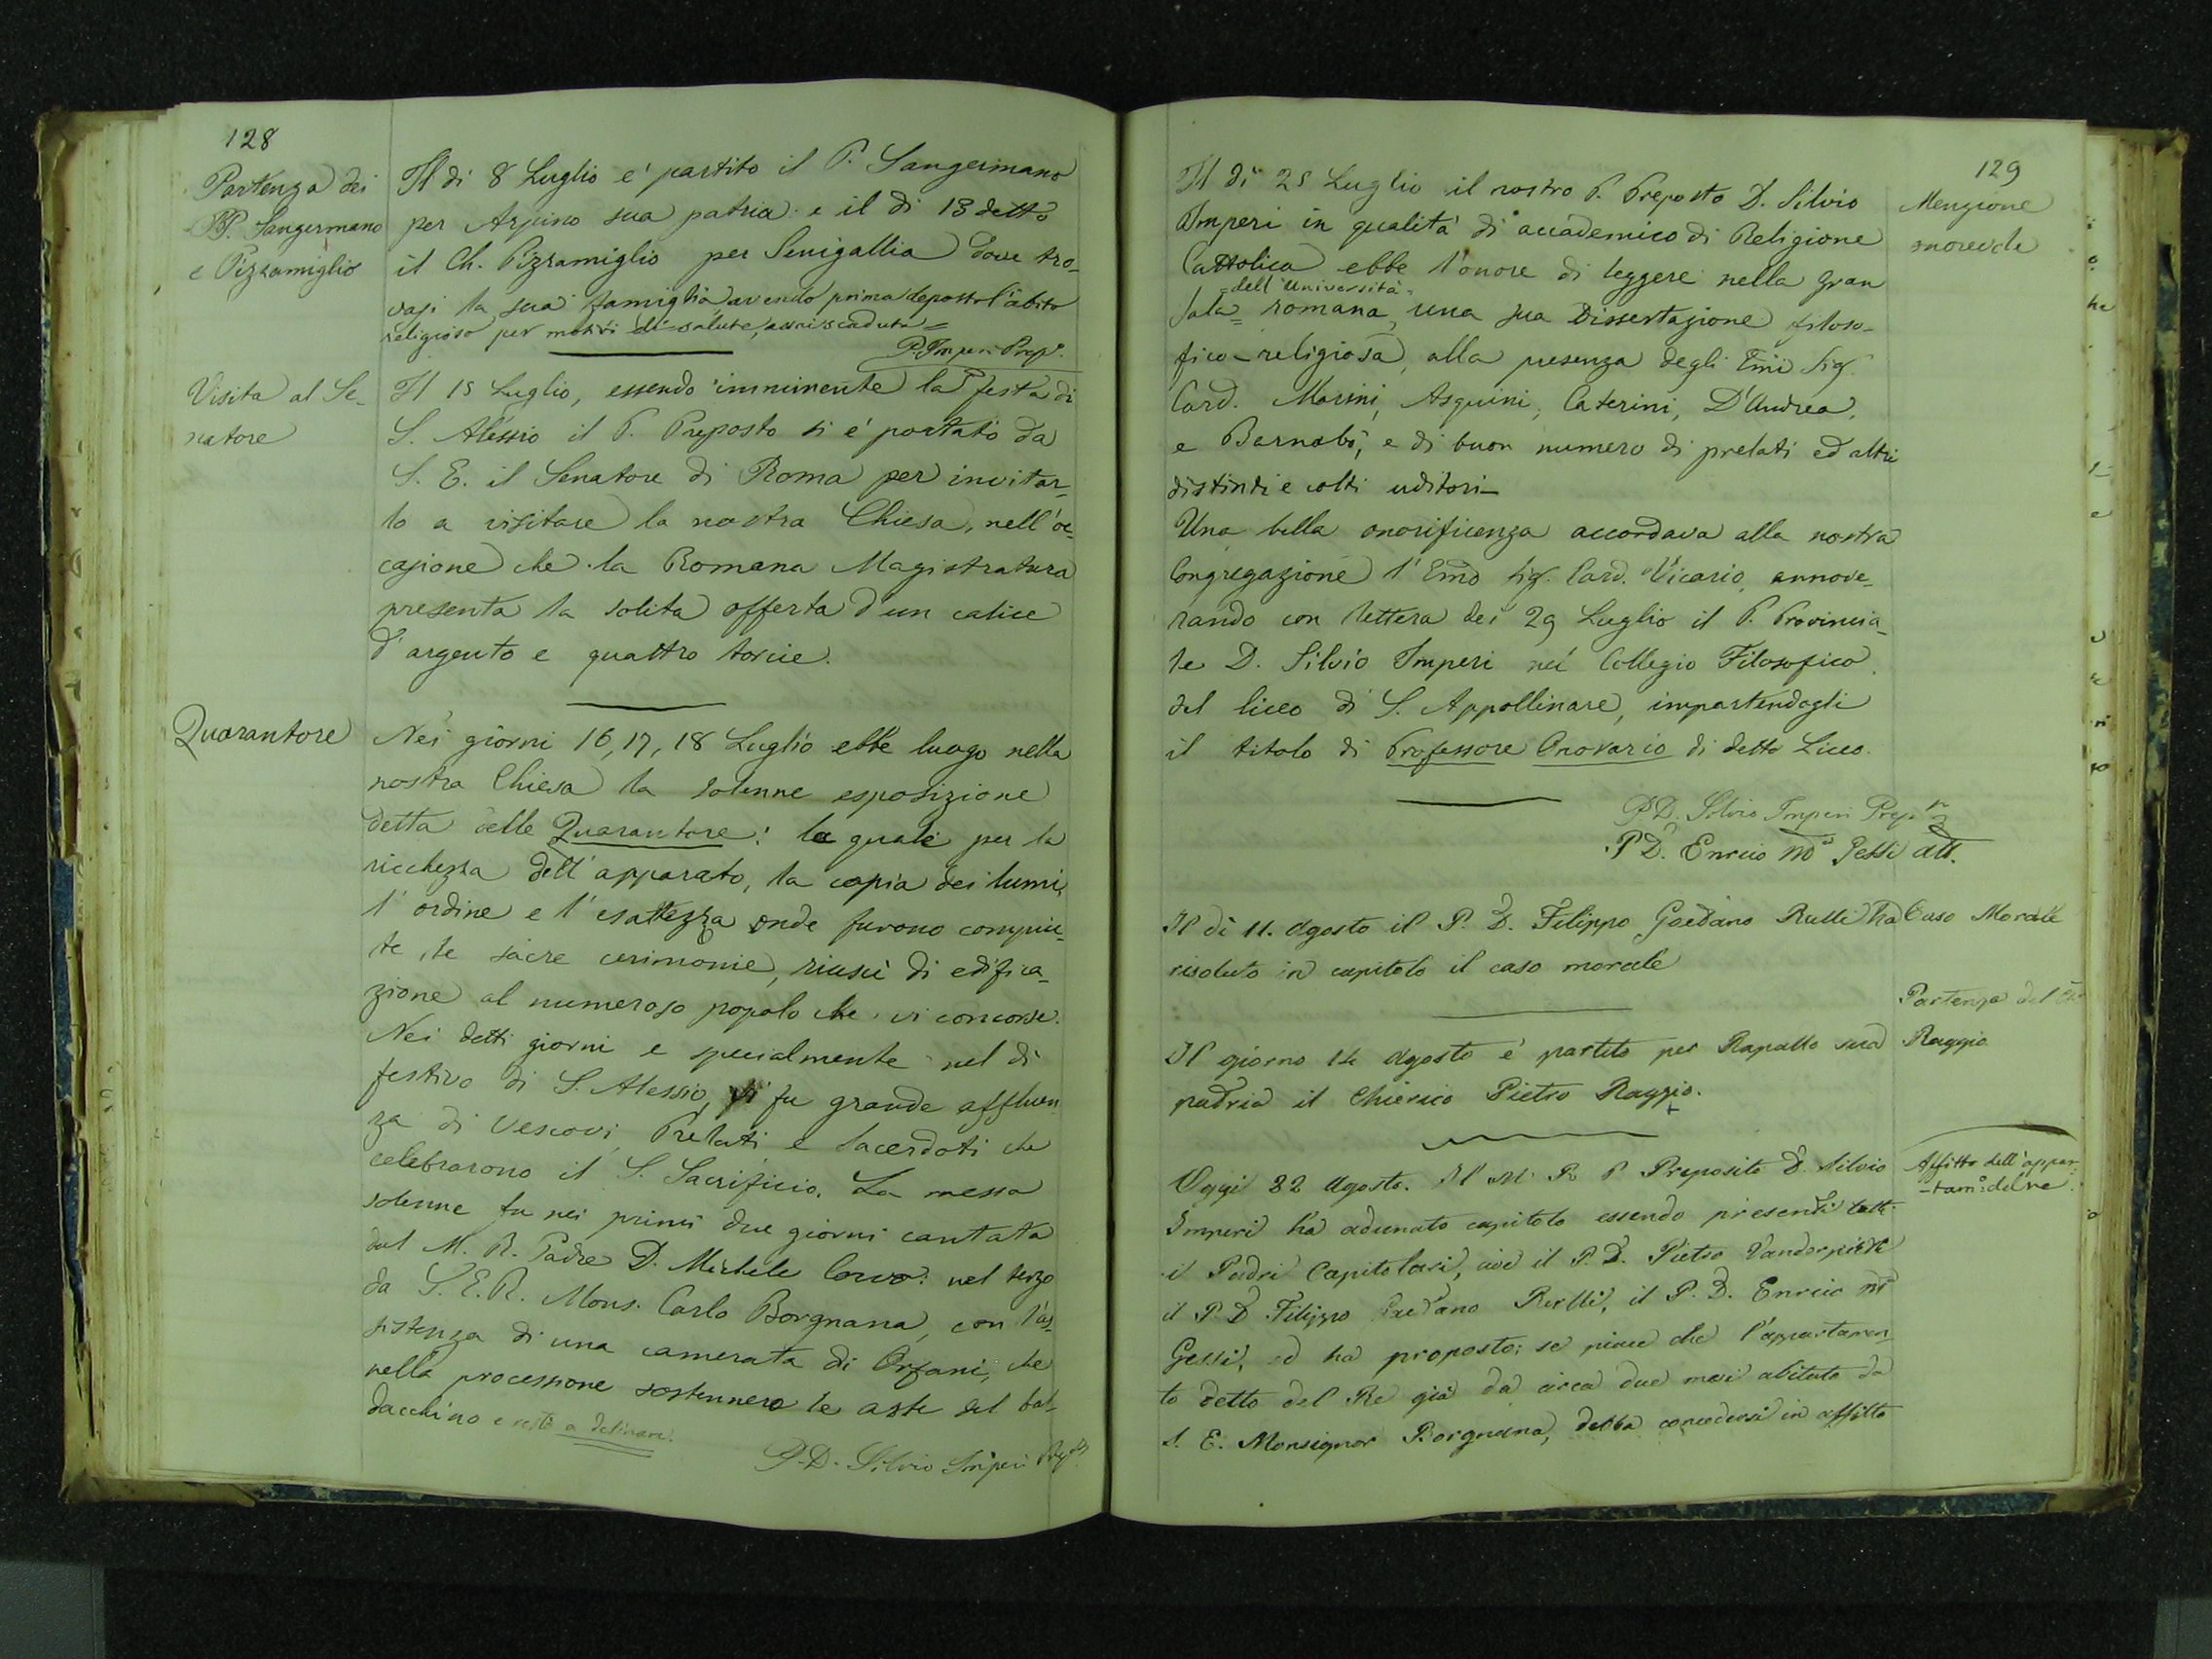 128
Partenza dei
PP. Sangermano
e Pizzamiglio
Il di 8 Luglio e' partito il P. Sangermano
per Arpino sua patria: e il di 13 detto
il Ch. Pizzamiglio per Senigallia dove tro-
vasi la sua famiglia, avendo prima deposto l'abito
religioso per motivi di salute, assai scaduta=
P. Imperi Prepo.
Visita al Se-
natore
Il 15 Luglio, essendo imminente la festa di
S. Alessio il P. Preposto si e' portato da
S. E. il Senatore di Roma per invitar-
lo a visitare la nostra Chiesa, nell'oc-
casione che la Romana Magistratura
presenta la solita offerta d'un calice
d'argento e quattro torcie.
Quarantore
Nei giorni 16, 17, 18 Luglio ebbe luogo nella
nostra Chiesa la solenne esposizione
detta delle Quarantore: la quale per la
ricchezza dell'apparato, la copia dei lumi,
l'ordine e l'esattezza onde furono compiu-
te le sacre cerimonie, riuscì di edifica-
zione al numeroso popolo che vi concorse.
Nei detti giorni e specialmente nel dì
festivo di S. Alessio, vi fu grande affluen
za di Vescovi, Prelati, e Sacerdoti che
celebrarono il S. Sacrificio. La messa
solenne fu nei primi due giorni cantata
dal M. R. Padre D. Michele Corvo: nel terzo
da S. E. R. Mons. Carlo Borgnana, con l'as-
sistenza di una camerata di Orfani, che
nella processione sostennero le aste del bal-
dacchino e restò a desinare.
P. D. Silvio Imperi Prepto
129
Il di 25 Luglio il nostro P. Preposto D. Silvio
Imperi in qualità di accademico di Religione
Cattolica ebbe l'onore di leggere nella gran
=dell'Università=
Sala= romana, una sua Dissertazione filoso-
fico-religiosa, alla presenza degli Emi Sig.
Card. Marini, Asquini, Caterini, D'Andrea,
e Barnabò, e di buon numero di prelati ed altri
distinti e colti uditori-
Menzione
Una bella onorificenza accordava alla nostra
Congregazione l'Emo Sig. Card. Vicario, annove-
rando con lettera dei 29 Luglio il P. Provincia-
le D. Silvio Imperi nel Collegio Filosofico
del liceo di S. Appollinare, impartendogli
il titolo di Professore Onorario di detto Liceo.
P. D. Silvio Imperi Prepto
P. D. Enrico Ma Gessi att.
Il dì 11. Agosto il P. D. Filippo Gaetano Rulli ha
risoluto in capitolo il caso morale
Caso Morale
Partenza del Ch.
Raggio
Il giorno 14 Agosto è partito per Rapallo sua
patria il Chierico Pietro Raggio.
+
Affitto dell'appar-
-tamo del re
Oggi 22 Agosto. Il M. R. P. Preposito D. Silvio
Imperi ha adunato capitolo essendo presenti tutti
i Padri Capitolari, cioè il P. D. Pietro
il P. D. Filippo Gaetano Rulli, il P. D. Enrico Ma
Gessi, ed ha proposto: se piace che l'appartamen-
to detto del Re già da circa due mesi abitato da
S. E. Monsignor Borgnana, debba concedersi in affitto